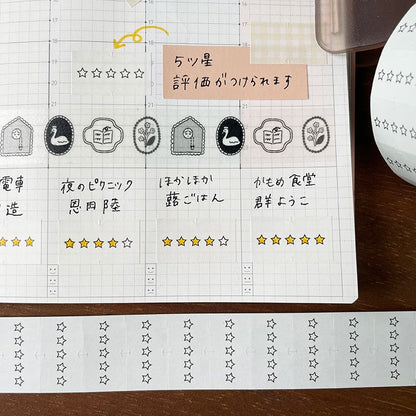 5ツ星
評価がつけられます
電車
造
夜のピクニック
恩田陸
ほかほか
蕗ごはん
かもめ食堂
群ようこ